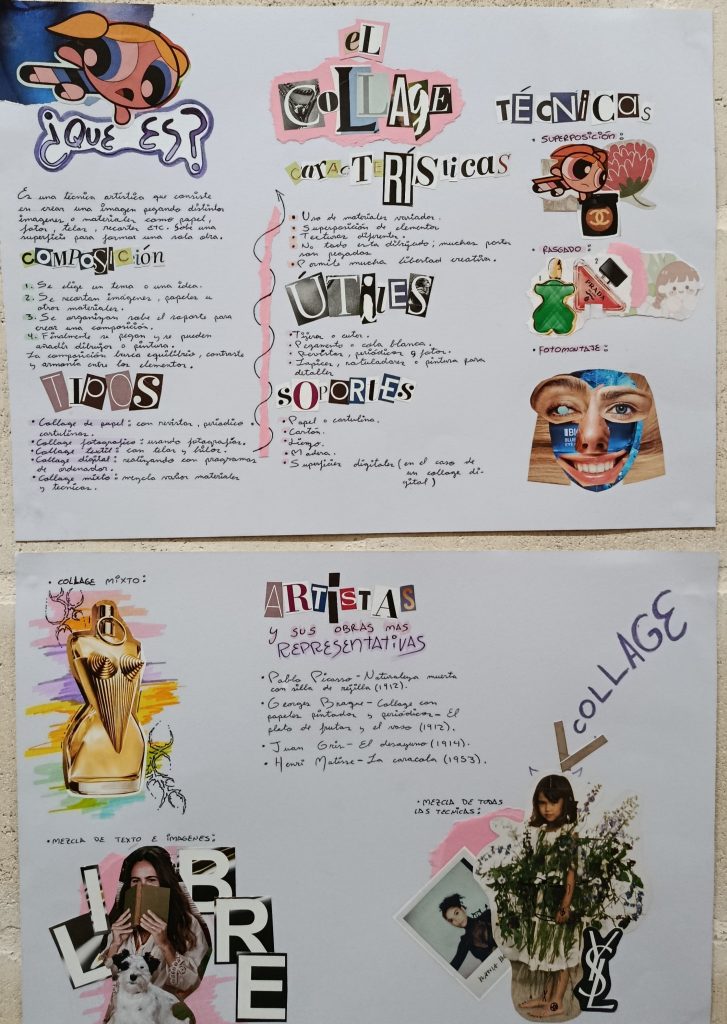 ¿QUE ES?
Es una técnica artística que consiste
en crear una imagen pegando distintos
imagenes o materiales como papel,
fotos, telas, recortes ETC. Sobre una
superficie para formar una sola obra.
COMPOSICIÓN
1. Se elige un tema o una idea.
2. Se recortan imágenes, papeles u
otros materiales.
3. Se organizan sobre el soporte para
crear una composición.
4. Finalmente se pegan y se pueden
añadir dibujos o pintura.
La composición busca equilibrio, contraste
y armonía entre los elementos.
TIPOS
• Collage de papel: con revistas, periodico o
cartulinas.
• Collage fotografico: usando fotografías.
• Collage textil: con telas y hilos.
• Collage digital: realizando con programas
de ordenador.
• Collage mixto: mezcla varios materiales
y tecnicas.
eL
COLLAGE
CARACTERÍSTICAS
• Uso de materiales variados.
• Superposición de elementos
• Texturas diferentes.
• No todo esta dibujado; muchas partes
son pegadas
• Permite mucha libertad creativa.
ÚTILES
• Tijeras o cuter.
• Pegamento o cola blanca.
• Revistas, periódicos y fotos.
• Lapices, rotuladores o pintura para
detalles
SOPORTES
• Papel o cartulina.
• Cartón.
• Lienzo.
• Madera.
• Superficies digitales (en el caso de
un collage di-
gital)
TÉCNICAS
• SUPERPOSICIÓN:
CHANEL
• RASGADO:
PRADA
• FOTOMONTAJE:
• COLLAGE MIXTO:
ARTISTAS
Y SUS OBRAS MAS
REPRESENTATIVAS
• Pablo Picasso - Naturaleza muerta
con silla de rejilla (1912).
• Georges Braque - Collage con
papeles pintados y periódicos - El
plato de frutas y el vaso (1912).
• Juan Gris - El desayuno (1914).
• Henri Matisse - La caracola (1953).
COLLAGE
• MEZCLA DE TODAS
LAS TECNICAS:
• MEZCLA DE TEXTO E IMAGENES:
LIBRE
YSL